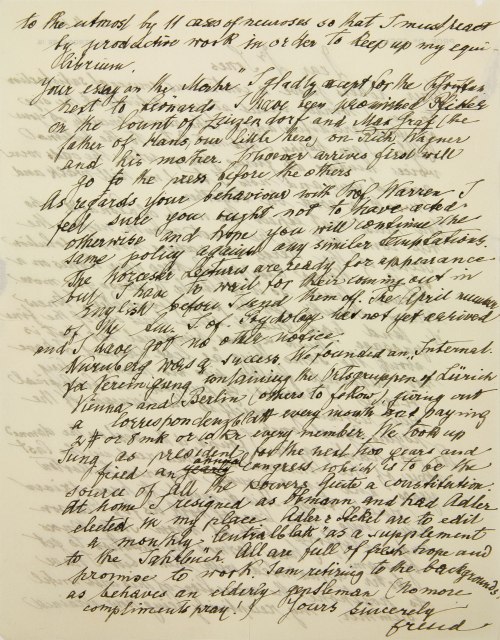 to the utmost by 11 cases of neuroses so that I must react
by productive work in order to keep up my equi-
librium.
Your essay on the "Mahr" I gladly accept for the
next to Leonardo. I have been promised
on the Count of Zinzendorf and Max Graf (the
father of Hans, our little hero) on Rich. Wagner
and his mother. Whoever arrives first will
go to the press before the others.
As regards your behaviour with Prof Warren, I
feel sure you ought not to have acted
otherwise and hope you will continue the
same policy against any similar temptations.
The Worcester Lectures are ready for appearance
but I have to wait for their coming out in
English before I send them off. The April number
of the Am. J. of Psychology has not yet arrived
and I have got no other notice.
Nuremberg was a success. We founded an "Internat.
Verein" containing the Ortsgruppen of Zürich
Vienna and Berlin (others to follow), giving out
a Correspondenzblatt every month and paying
2 # or 8 mk or 10 kr every member. We took up
Jung as president for the next two years and
fixed an annual Congress which is to be the
source of all the powers. Quite a constitution.
At home I resigned as Obmann and had Adler
elected in my place. Adler & Stekel are to edit
a monthly "Centralblatt" as a supplement
to the Jahrbuch. All are full of fresh hope and
promise to work. I am retiring to the backgrounds
as behaves an elderly gentleman (no more
compliments pray!)    Yours sincerely
Freud